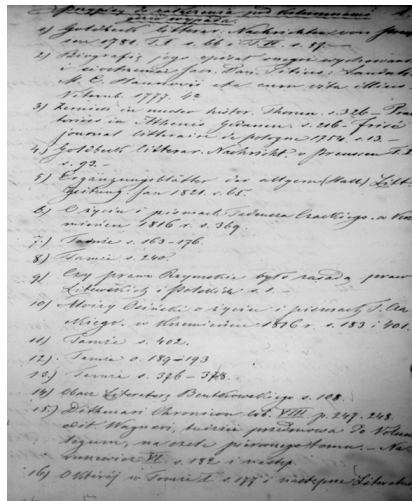 1) Goldbeck litterar. Nachrichten von
1781. T.I. s. 66 i T.II. s.
2) Biografię jego
i siostrzeniec Jan. Dan. Titius:
M. C. Hanovii eta cum vita illius.
Vitemb. 1777. 42
3) s. 326
in Athenis s. 216
journal litteraire de Pologne 1754. s. 13.
4) Goldbeck literar. Nachricht. v. Preussen T.
s. 93.
5) Ergänzungsblätter der allgem. (Hall) Litt.
Zeitung Jan 1821. s. 65.
6) O życiu i pismach Tadeusza Czackiego. w Krze
mieńcu 1816 r. s. 369.
7) Tamże s. 163-176.
8) Tamże s. 240.
9) Czy prawo Rzymskie było zasadą praw
Litewskich i Polskich s. 1.
10) Alojzy Osiński o życiu i pismach T. Cza
ckiego. w Krzemieńcu 1816 r. s. 183 i 401.
11) Tamże s. 402.
12) Tamże s. 189-193
13) Tamże s. 376-378.
14) Obacz Literaturę Bentkowskiego s. 108.
15) Dithmari Chronicon lib. VIII p. 247. 248.
edit. Wagneri, tudzież przedmowa do Volum
legum, na czele pierwszego tomu. - Na
ruszewicz VI s. 182 i następ.
16) w Tomie I s. 177 i następne